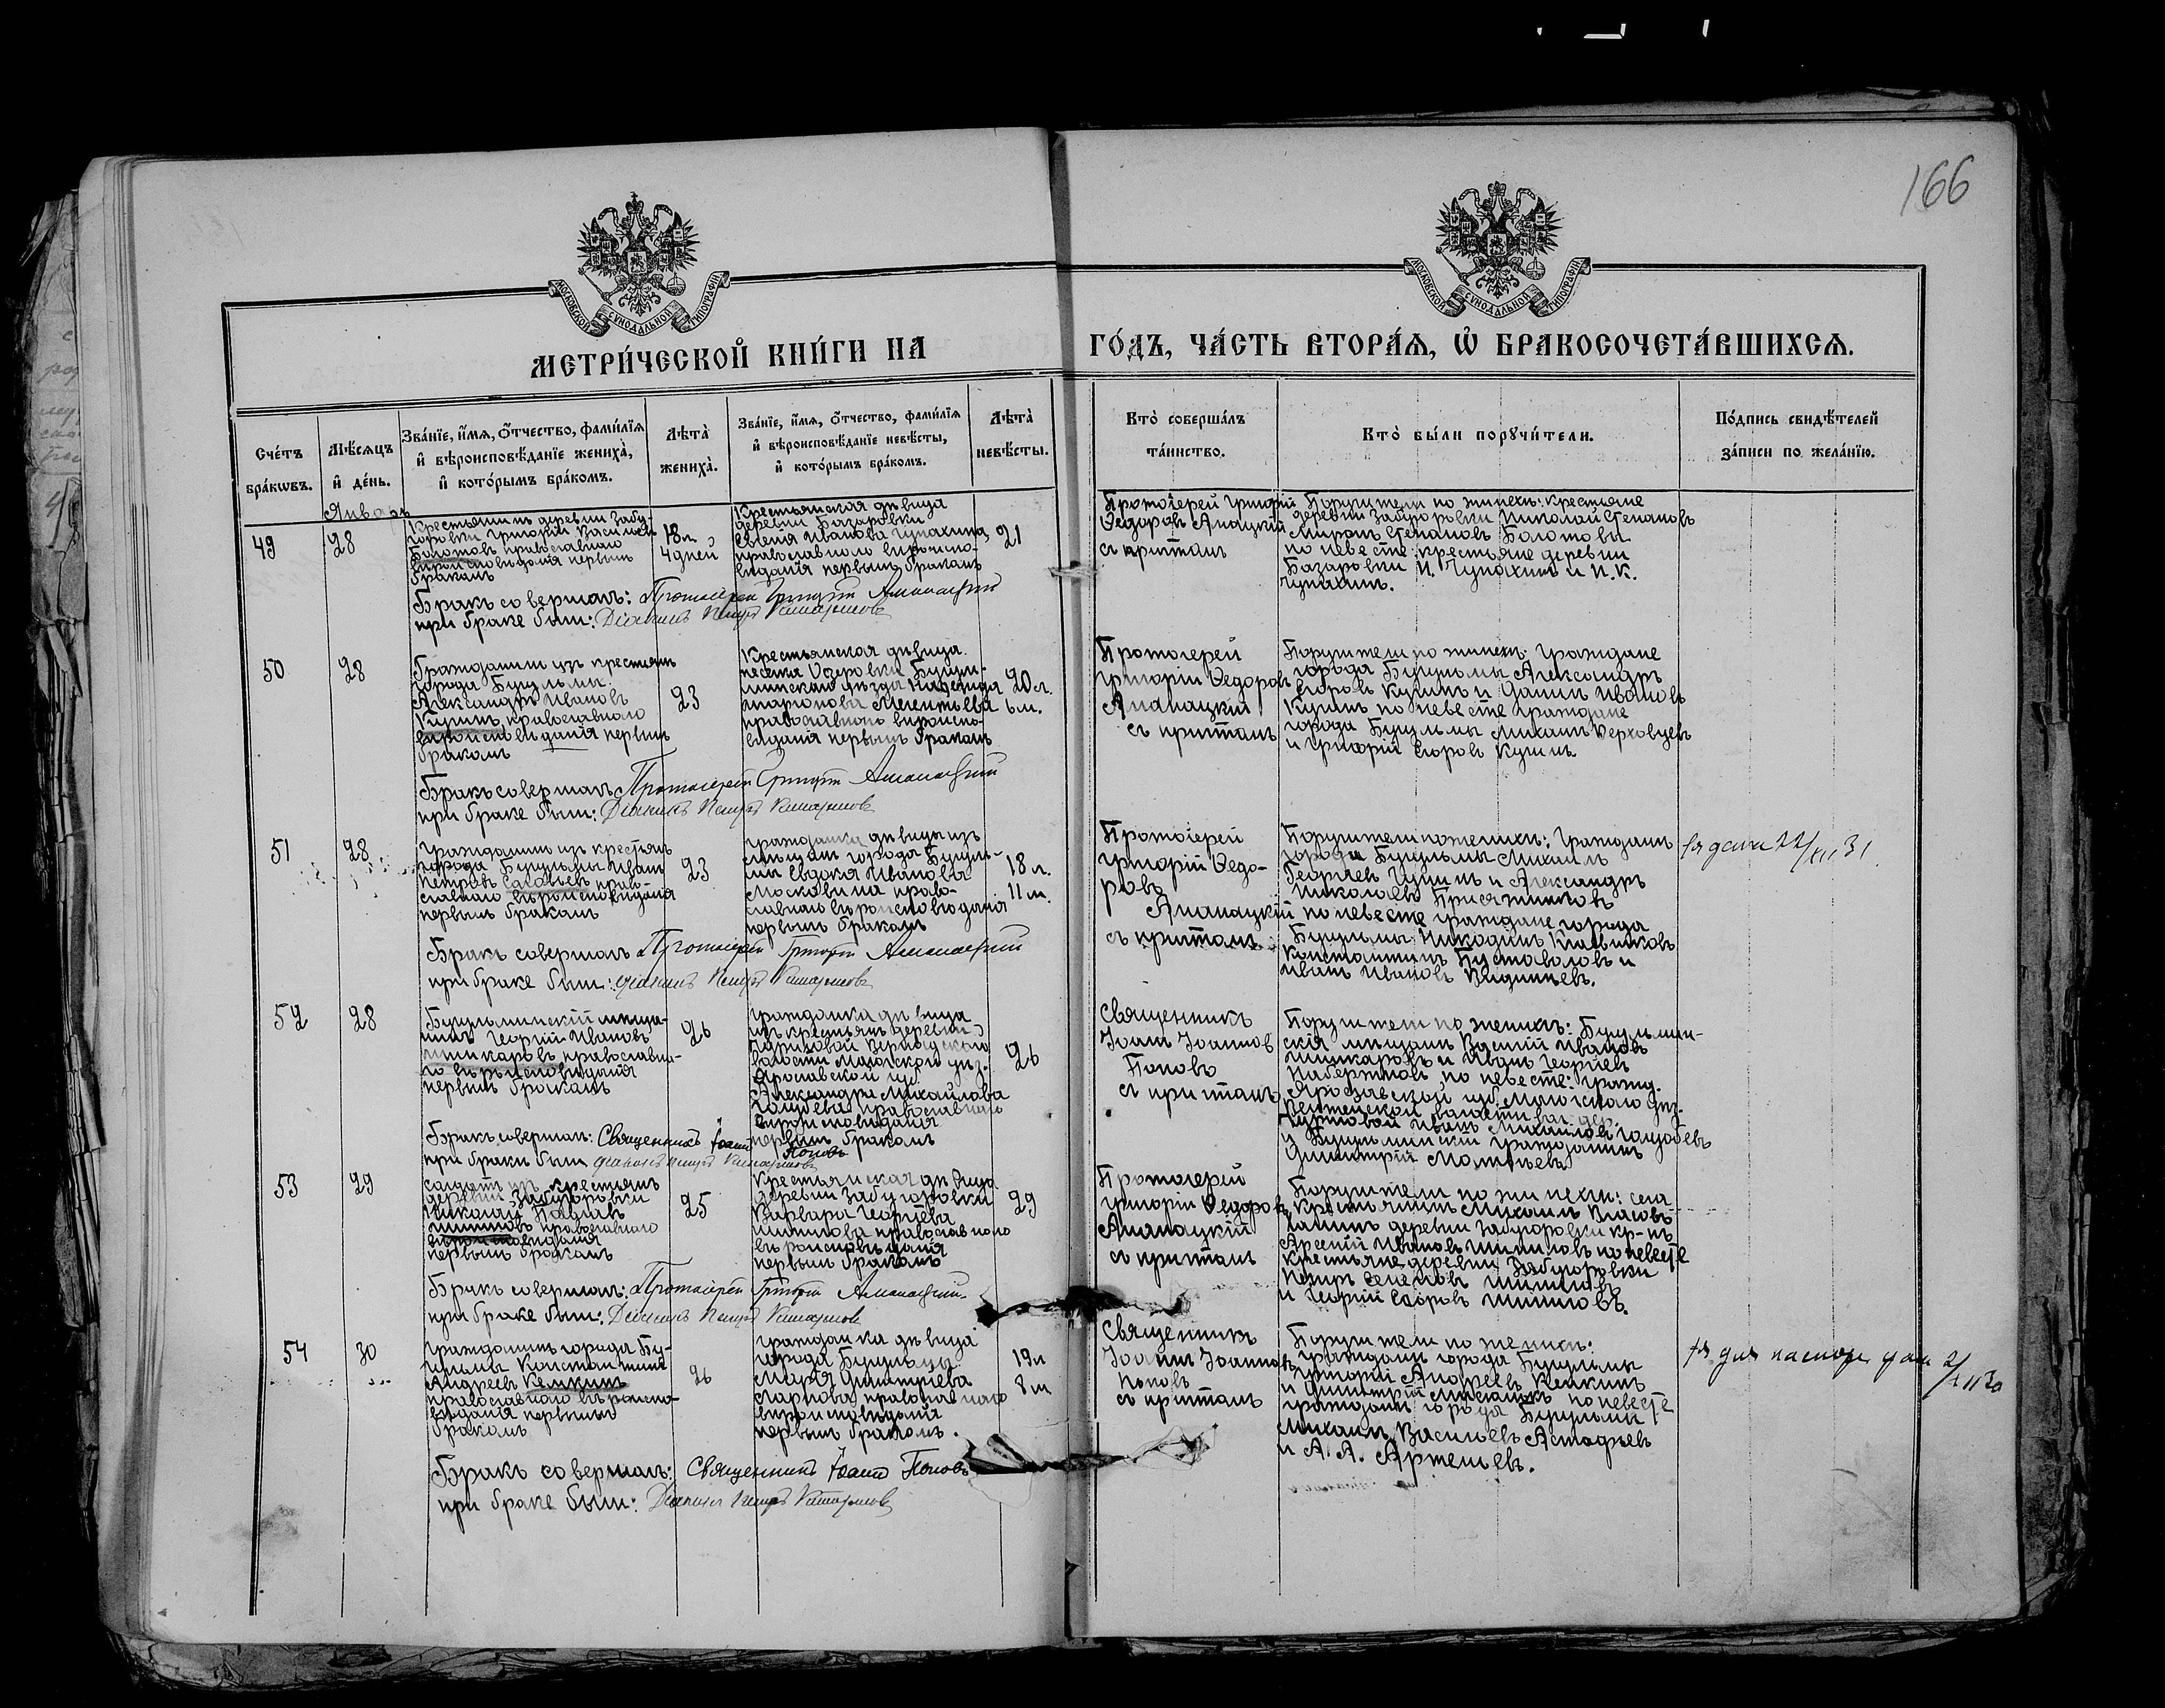 166
МОСКОВСКОЙ СУНОДАЛЬНОЙ ТИПОГРАФІИ
МОСКОВСКОЙ СУНОДАЛЬНОЙ ТИПОГРАФІИ
МЕТРИ́ЧЕСКОЙ КНИ́ГИ НА ГО́ДЪ, ЧА́СТЬ ВТОРА́Я, Ѡ҆ БРАКОСОЧЕТА́ВШИХСЯ.
Сче́тъ
бра́кѡвъ.
Мѣ́сяцъ
и҆ де́нь.
Зва́нїе, и҆́мя, ѻ҆́тчество, фами́лїя
и҆ вѣроисповѣ́данїе жениха̀,
и҆ кото́рымъ бра́комъ.
Лѣта̀
жениха̀.
Зва́нїе, и҆́мя, ѻ҆́тчество, фами́лїя
и҆ вѣроисповѣ́данїе невѣ́сты,
и҆ кото́рымъ бра́комъ.
Лѣта̀
невѣ́сты.
Кто̀ соверша́лъ
та́инство.
Кто̀ бы́ли порꙋчи́тели.
По́дпись свидѣ́телей
за́писи по жела́нїю.
Январь
49
28
Крестьянинъ деревни Забу-
горовки Григорій Васильевъ
Болотовъ православнаго
вѣроисповѣданія первымъ
бракомъ
18 л.
4 дней
Крестьянская дѣвица
деревни Базаровки
Иванова Чупахина,
православнаго вѣроиспо-
вѣданія первымъ бракомъ
21
Протоіерей Григорій
Ѳедоровъ Ананацкій
съ притомъ
Поручители по женихѣ: крестьяне
деревни Забугоровки Николай Степановъ
Миронъ Степановъ Болотовы
по невесте: крестьяне деревни
Базаровки И. Чупахинъ и И. К.
Чупахинъ.
Бракъ совершалъ: Протоіерей Григорій
при браке былъ: Діаконъ Петръ
50
28
Гражданинъ изъ крестьянъ
города Бугульмы
Александръ Ивановъ
Кузинъ православнаго
вѣроисповѣданія первымъ
бракомъ
23
Крестьянская дѣвица
Бугуль-
минскаго уѣзда Надежда
православнаго вѣроиспо-
вѣданія первымъ бракомъ
20 л.
6 м.
Протоіерей
Григорій Ѳедоровъ
Ананацкій
съ притомъ
Поручители по женихѣ: граждане
города Бугульмы Александръ
Егоровъ Кузинъ и Данилъ Ивановъ
Кузинъ по невесте граждане
города Бугульмы Михаилъ Верховцевъ
и Григорій Егоровъ Кузинъ
Бракъ совершалъ Протоіерей Григорій
при браке былъ: Діаконъ Петръ
51
28
Гражданинъ изъ крестьянъ
города Бугульмы Иванъ
Петровъ Соловьевъ право-
славнаго вѣроисповѣданія
первымъ бракомъ
23
Гражданка дѣвица изъ
мѣщанъ города Бугуль-
мы Евдокія Иванова
Москвина право-
славнаго вѣроисповѣданія
первымъ бракомъ
18 л.
11 м.
Протоіерей
Григорій Ѳедо-
ровъ
Ананацкій
съ притомъ
Поручители по женихѣ: граждане
города Бугульмы Михаилъ
Георгіевъ и Александръ
Николаевъ
по невесте граждане города
Бугульмы: Никодимъ
Константинъ Пустоваловъ и
Иванъ Ивановъ
Бракъ совершалъ Протоіерей Григорій
при браке былъ: діаконъ Петръ
52
28
Бугульминскій мѣща-
нинъ Георгій Ивановъ
Шинкаровъ православна-
го вѣроисповѣданія
первымъ бракомъ
26
Гражданка дѣвица
изъ крестьянъ деревни
волости уѣз.
Ярославской губ.
Александра Михайлова
Голубева православнаго
вѣроисповѣданія
первымъ бракомъ
26
Священникъ
Іоаннъ Іоанновъ
Поповъ
съ притомъ
Поручители по женихѣ: Бугульмин-
скія мѣщане Василій Ивановъ
Шинкаровъ и Иванъ Георгіевъ
по невесте: гражд.
Ярославской губ.
волости
Иванъ Михаиловъ Голубевъ
и Бугульминскій гражданинъ
Димитрій Матвѣевъ
Бракъ совершалъ: Священникъ Іоаннъ Поповъ
при браке былъ діаконъ Петръ
53
29
Солдатъ изъ крестьянъ
деревни Забугоровки
Николай Павловъ
Шишловъ православнаго
вѣроисповѣданія
первымъ бракомъ
25
Крестьянская дѣвица
деревни Забугоровки
Варвара Георгіева
Шишлова православнаго
вѣроисповѣданія
первымъ бракомъ
29
Протоіерей
Григорій Ѳедоровъ
Ананацкій
съ притомъ
Поручители по женихѣ: села
Крестьянинъ Михаилъ Власовъ
деревни Забугоровки кр-нъ
Арсеній Ивановъ Шишловъ по невесте
крестьяне деревни Забугоровки
Петръ Шишловъ
и Георгій Егоровъ Шишловъ.
Бракъ совершалъ: Протоіерей Григорій
при браке былъ: Діаконъ Петръ
54
30
Гражданинъ города Бу-
гульмы Константинъ
Андреевъ Кемкинъ
православнаго вѣроиспо-
вѣданія первымъ
бракомъ
26
Гражданка дѣвица
города Бугульмы
Марія Димитріева
православнаго
вѣроисповѣданія
первымъ бракомъ.
19 л
8 м
Священникъ
Іоаннъ Іоанновъ
Поповъ
съ притомъ
Поручители по женихѣ:
граждане города Бугульмы
Григорій Андреевъ Кемкинъ
и Димитрій по невесте
граждане города Бугульмы
Михаилъ Васильевъ Астафьевъ
и А. А. Артемьевъ.
Бракъ совершалъ: Священникъ Іоаннъ Поповъ
при браке былъ: Діаконъ Петръ